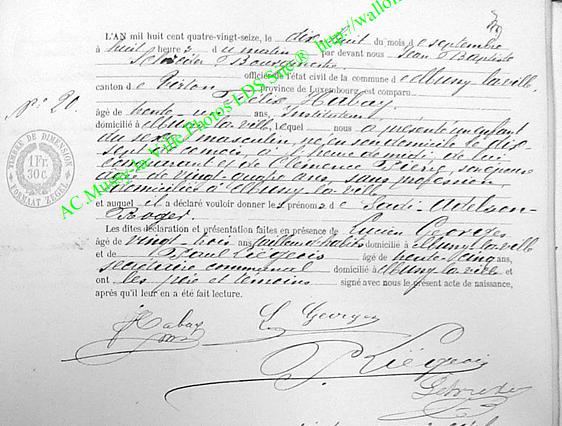 L'AN mil huit cent quatre-vingt-seize, le dix-huit du mois de septembre
à huit heures du matin par devant nous Jean Baptiste
Bourgmestre
officier de l'état civil de la commune de Mussy-la-ville,
canton de Virton, province de Luxembourg, est comparu
N° 20.
Félix Habay
âgé de trente ans, Instituteur
domicilié à Mussy-la-ville, lequel nous a présenté un enfant
du sexe masculin, né en son domicile le dix
sept de ce mois à heure de midi, de lui
comparant et de Clémence son épouse
âgée de vingt-quatre ans, sans profession,
domiciliée à Mussy-la-ville
et auquel il a déclaré vouloir donner les prénoms de Sadi-
Roger
Les dites déclaration et présentation faites en présence de Lucien Georges
âgé de vingt-trois ans, domicilié à Mussy-la-ville
et de Liégeois âgé de trente-cinq ans,
secrétaire communal domicilié à Mussy-la-ville et
ont les père et témoins signé avec nous le présent acte de naissance,
après qu'il leur en a été fait lecture.
TIMBRE DE DIMENSION
1 Fr.
30 c.
FORMAAT ZEGEL
AC.Mussy-la-Ville Photos EDS Site® http://wallon
Habay
L Georges
Liégeois